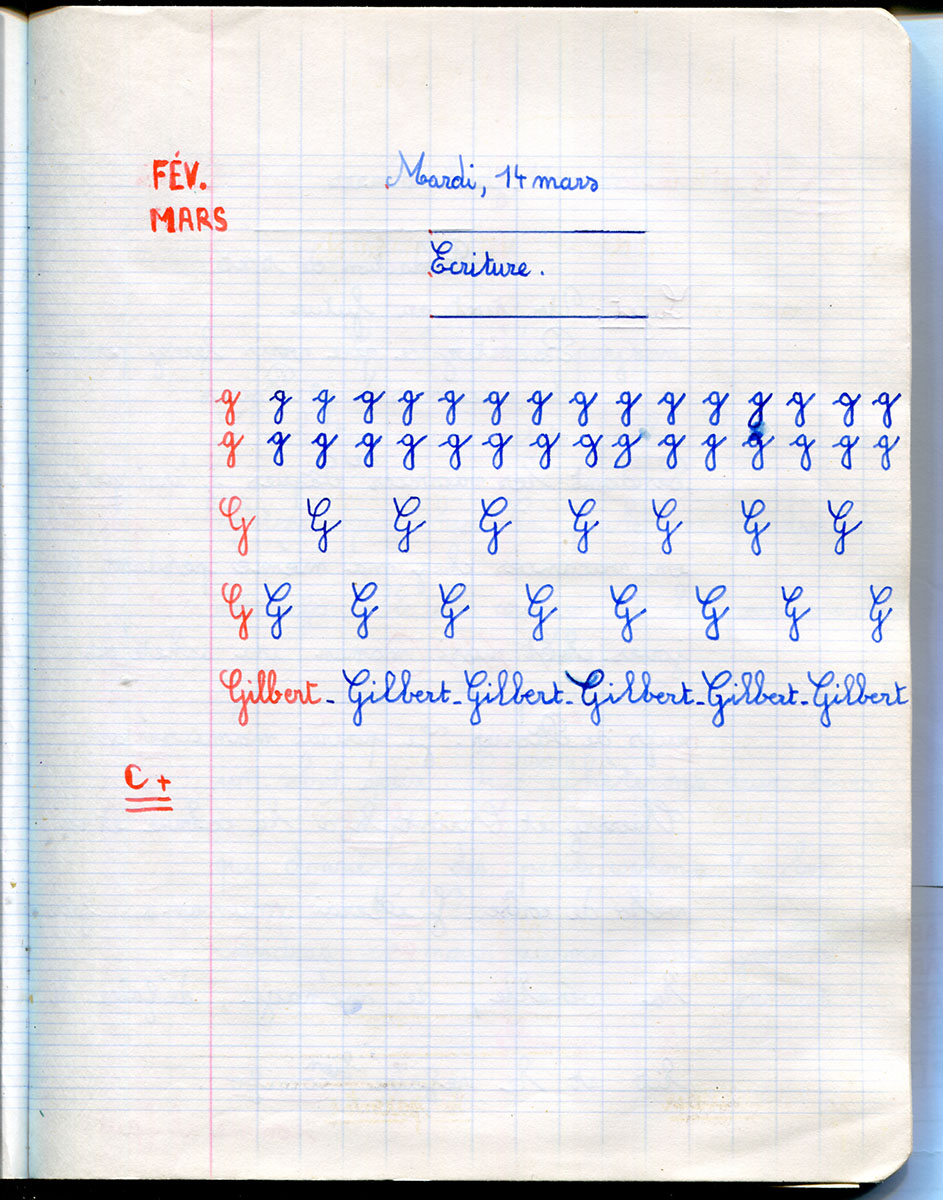 FÉV.
Mardi, 14 mars
MARS
Ecriture.
g g g g g g g g g g g g g g g g
g g g g g g g g g g g g g g g g
G G G G G G G G
G G G G G G G G G
Gilbert - Gilbert - Gilbert - Gilbert - Gilbert - Gilbert
C +